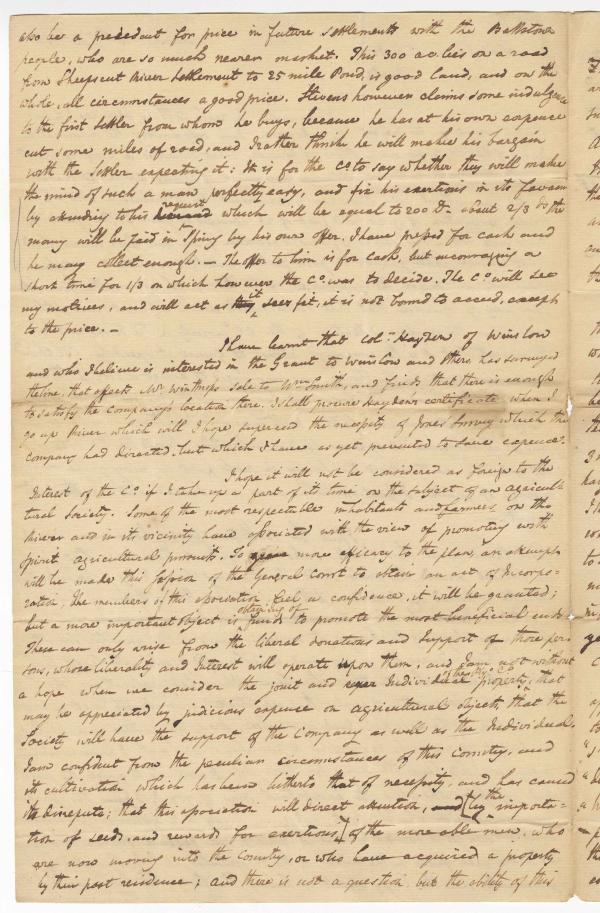 also be a precedent for price in future settlements with the Ballstown
people, who are so much nearer market. This 300 ac. lies on a road
from Sheepscut River Settlement to 25 mile Pond, is good land, and on the
whole, all circumstances a good price. Stevens however claims some indulgence
to the first settler from whom he buys, because he has at his own expence
cut some miles of road, and I rather think he will make his bargain
with the settler expecting it: It is for the Co. to say whether they will make
the mind of such a man perfectly easy, and fix his exertions in its favour
by attending to his request which will be equal to 200 D. about 2/3 to the
money will be paid in Spring by his own offer. I have pressed for cash and
he may collect enough. — The offer to him is for cash, but encouraging a
short time for 1/3 on which however the Co. was to decide. The Co. will see
my motives, and will act as it sees fit, it is not bound to accede, except
to the price. —
I have learnt that Col. Hayden of Winslow
and who I believe is interested in the Grant to Winslow and others, has surveyed
the line, that affects Mr. Winthrops sale to Wm Smith, and finds that there is enough
to satisfy the Company's location there. I shall procure Haydens certificate when I
go up River which will I hope supercede the necessity of Jones survey which the
Company had directed, but which I have as yet prevented to save expence.
I hope it will not be considered as foreign to the
Interest of the Co. if I take up a part of its time on the subject of an agricul-
tural Society. Some of the most respectable inhabitants and farmers on the
River and in its vicinity have associated with the view of promoting with
spirit agricultural pursuits. To more efficacy to the plan, an attempt
will be made this session of the General Court to obtain an act of Incorpo-
ration, The members of this association feel a confidence, it will be granted;
but a more important object is obtaining of funds to promote the most beneficial ends
These can only arise from the liberal donations and support of those per-
sons, whose liberality and Interest will operate upon them, and I am not without
a hope when we consider the joint and Individual property of the Co. that
may be appreciated by judicious expence on agricultural objects, that the
Society will have the support of the Company as well as the Individual.
I am confident from the peculiar circumstances of this Country, and
its cultivation which has been hitherto that of necessity, and has caused
its disrepute; that this association will direct attention, [by the importa-
tion of seeds, and rewards for exertions,] of the more able men, who
are now moving into the Country, or who have acquired a property
by their past residence; and there is not a question but the ability of this